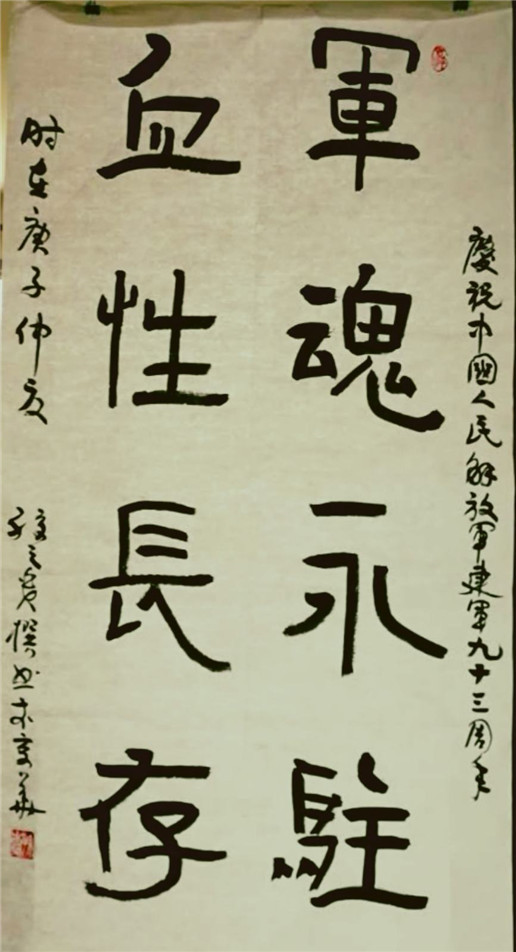 慶祝中國人民解放軍建軍九十三周年
軍魂永駐
血性長存
时在庚子仲夏
撰书于京華